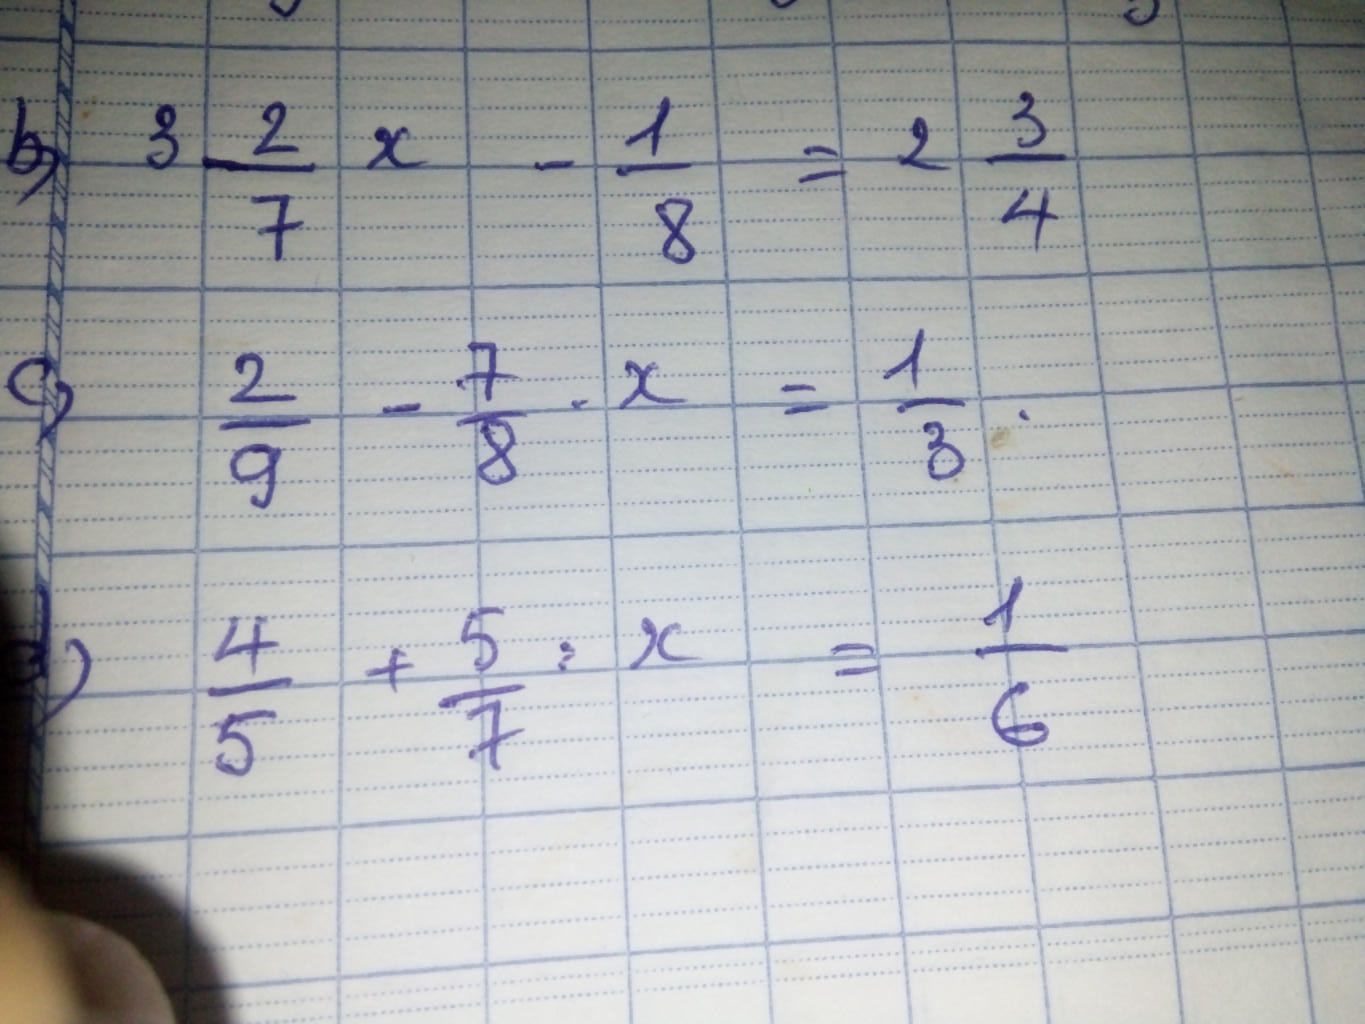 b) 3 2/7 x - 1/8 = 2 3/4
c) 2/9 - 7/8 . x = 1/3 .
d) 4/5 + 5/7 : x = 1/6